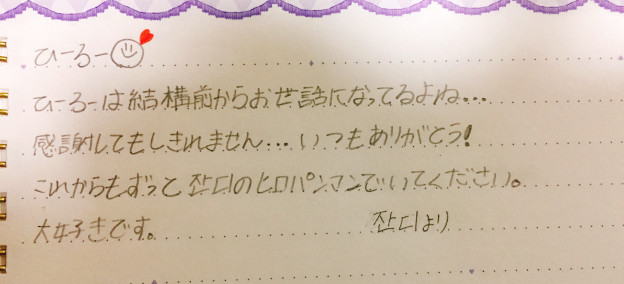 ひーろー
ひーろーは結構前からお世話になってるよね...
感謝してもしきれません...いつもありがとう!
これからもずっと잔디のヒロパンマンでいてください。
大好きです。 잔디より